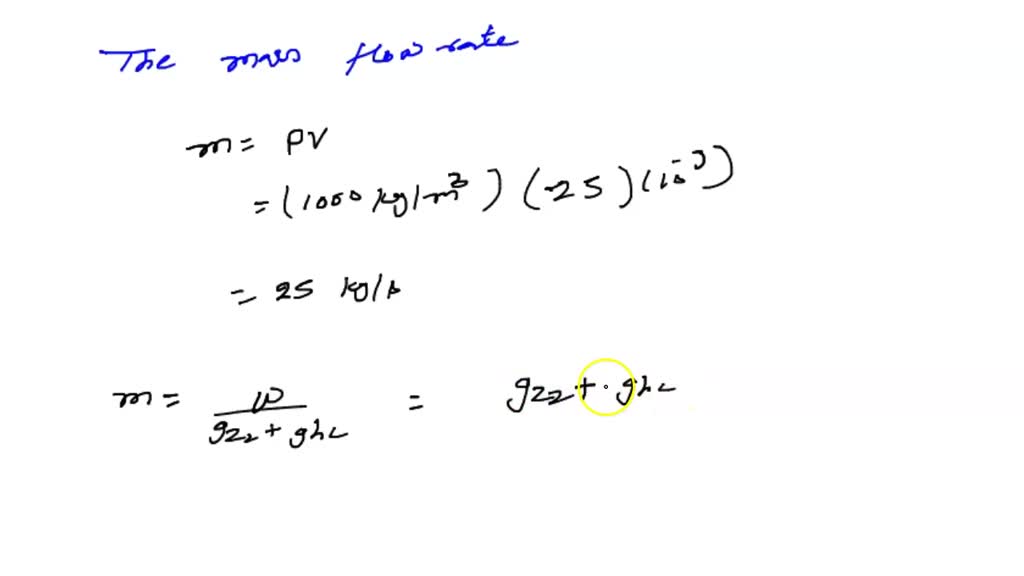 The mass flow rate
m = ρV
= (1000 kg/m³) (25) (10⁻³)
= 25 kg/s
m = W / gz₂ + ghL = gz₂ + ghL